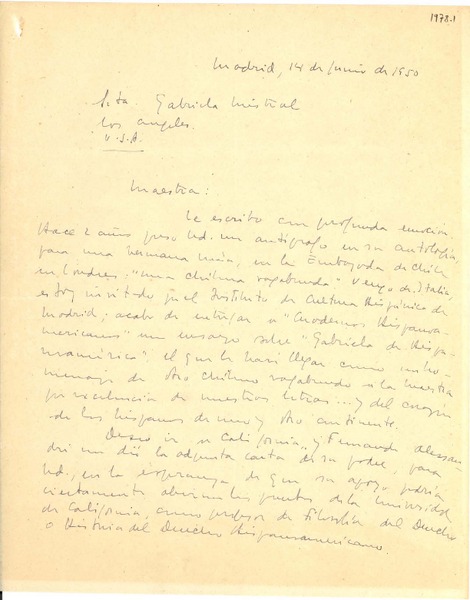 1978.1
Madrid, 14 de Junio de 1950
Srta. Gabriela Mistral
Los Angeles.
U.S.A.
Maestra:
Le escribo con profunda emoción.
Hace 2 años puso Ud. un autógrafo en su antología,
para una hermana mía, en la Embajada de Chile
en Londres: "una chilena vagabunda". Vengo de Italia,
estoy invitado por el Instituto de Cultura Hispánica de
Madrid; acabo de entregar a "Cuadernos Hispano-
americanos" un ensayo sobre "Gabriela de Hispa-
noamérica", el que le haré llegar como un ho-
menaje de otro chileno vagabundo a la maestra
por excelencia de nuestras letras... y del corazón
de los hispanos de uno y otro continente.
Deseo ir a California, y Fernando Alessan-
dri me dió la adjunta carta de su padre, para
Ud., en la esperanza de que su apoyo podría
ciertamente abrirme las puertas de la Universidad
de California, como profesor de Filosofía del Derecho
o Historia del Derecho Hispanoamericano.